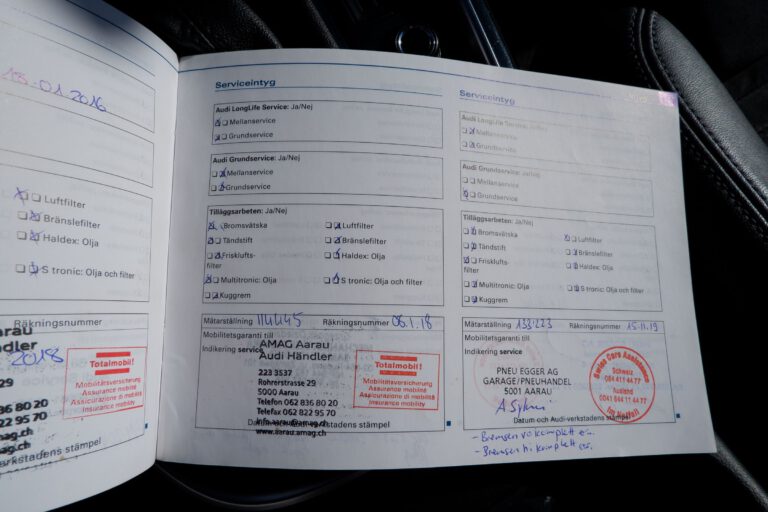 13.01.2016
Luftfilter
Bränslefilter
Haldex: Olja
S tronic: Olja och filter
Räkningsnummer
Aarau
ndler
2018
Totalmobil!
Mobilitätsversicherung
Assurance mobilité
Assicurazione di mobilità
Insurance mobility
29
836 80 20
822 95 70
amag.ch
mag.ch
verkstadens stämpel
Serviceintyg
Audi LongLife Service: Ja/Nej
Mellanservice
Grundservice
Audi Grundservice: Ja/Nej
Mellanservice
Grundservice
Tilläggsarbeten: Ja/Nej
Bromsvätska
Luftfilter
Tändstift
Bränslefilter
Frisklufts-
filter
Haldex: Olja
Multitronic: Olja
S tronic: Olja och filter
Kuggrem
Mätarställning 114445 Räkningsnummer 06.1.18
Mobilitetsgaranti till
Indikering service
AMAG Aarau
Audi Händler
223 3537
Rohrerstrasse 29
5000 Aarau
Telefon 062 836 80 20
Telefax 062 822 95 70
info.aarau@amag.ch
www.aarau.amag.ch
Totalmobil!
Mobilitätsversicherung
Assurance mobilité
Assicurazione di mobilità
Insurance mobility
Datum och Audi-verkstadens stämpel
Serviceintyg
Audi LongLife Service: Ja/Nej
Mellanservice
Grundservice
Audi Grundservice: Ja/Nej
Mellanservice
Grundservice
Tilläggsarbeten: Ja/Nej
Bromsvätska
Luftfilter
Tändstift
Bränslefilter
Frisklufts-
filter
Haldex: Olja
Multitronic: Olja
S tronic: Olja och filter
Kuggrem
Mätarställning 133'223 Räkningsnummer 15.11.19
Mobilitetsgaranti till
Indikering service
PNEU EGGER AG
GARAGE/PNEUHANDEL
5001 AARAU
Swiss Cars Assistance
Schweiz
084 411 44 77
Ausland
0041 844 11 44 77
im Notfall
Datum och Audi-verkstadens stämpel
- Bremsen vo komplett
- Bremsen hi komplett